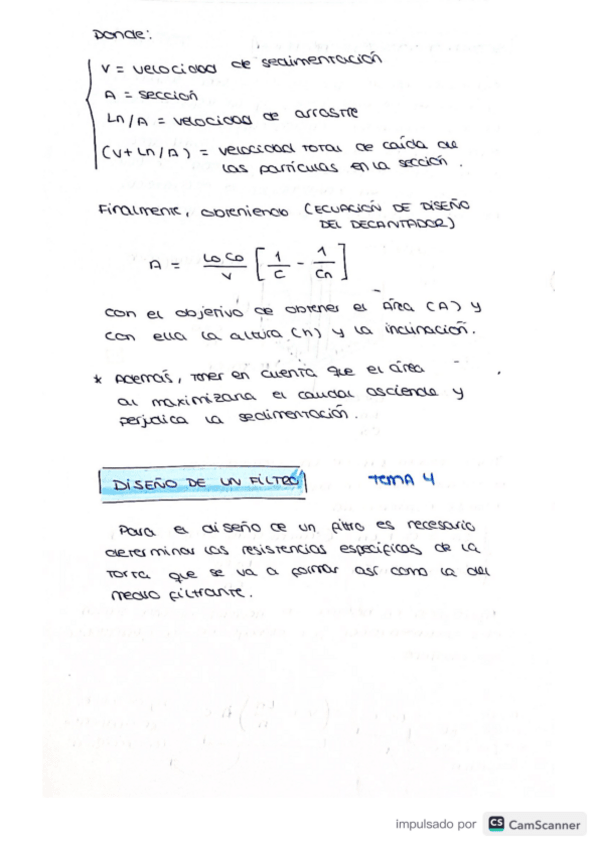 Donde:
V = velocidad de sedimentación
A = sección
Ln/A = velocidad de arrastre
(V + Ln/A) = velocidad total de caída de
las partículas en la sección.
Finalmente, obteniendo (ECUACIÓN DE DISEÑO
DEL DECANTADOR)
A = LoCo/V [1/C - 1/Cn]
con el objetivo de obtener el Área (A) y
con ella la altura (h) y la inclinación.
* Además, tener en cuenta que el área
al maximizarla el caudal asciende y
perjudica la sedimentación.
DISEÑO DE UN FILTRO TEMA 4
Para el diseño de un filtro es necesario
determinar las resistencias específicas de la
torta que se va a formar así como la del
medio filtrante.
impulsado por CS CamScanner